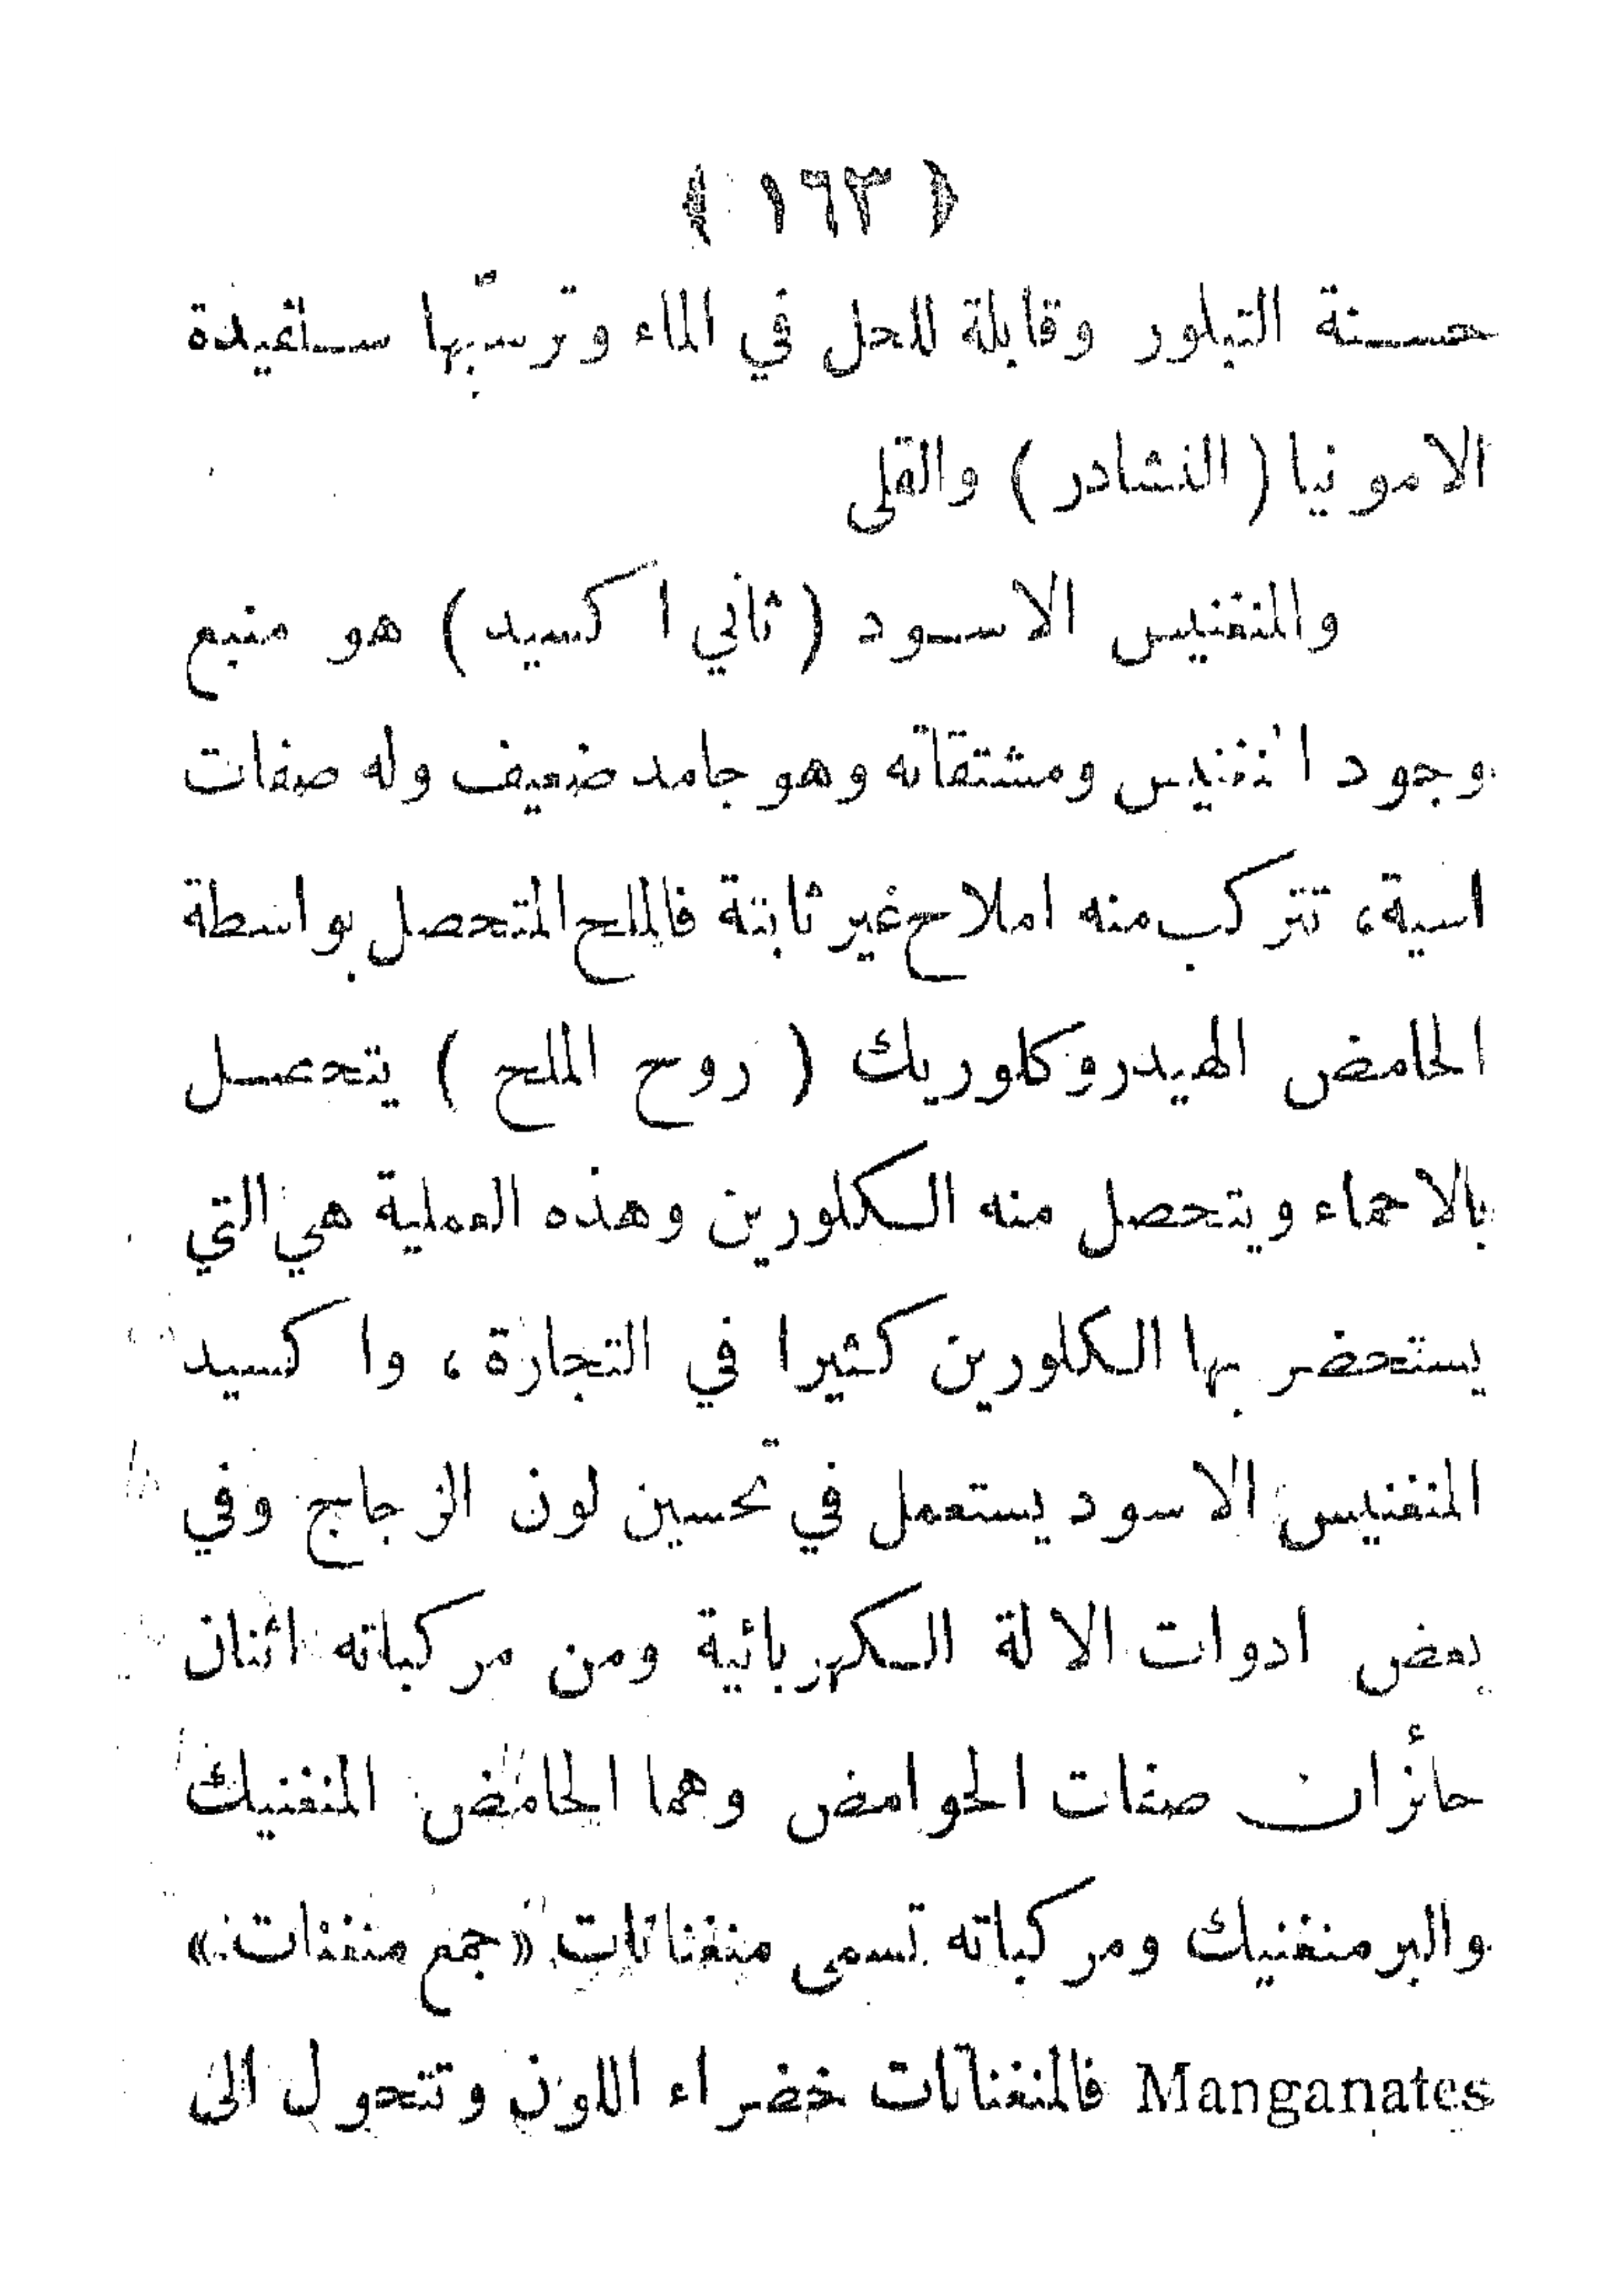 ﴿ ١٦٣ ﴾
حسنة التبلور وقابلة للحل في الماء وترسّبها سلفيدة
الامونيا ( النشادر ) والقلى
والمنغنيس الاسود ( ثاني اكسيد ) هو منبع
وجود المنغنيس ومشتقاته وهو جامد ضعيف وله صفات
اسية، تتركب منه املاح غير ثابتة فالملح المتحصل بواسطة
الحامض الهيدروكلوريك ( روح الملح ) يتحصل
بالاحماء ويتحصل منه الكلورين وهذه العملية هي التي
يستحضر بها الكلورين كثيرا في التجارة ، واكسيد
المنغنيس الاسود يستعمل في تحسين لون الزجاج وفي
بعض ادوات الالة الكهربائية ومن مركباته اثنان
حأئزان صفات الحوامض وهما الحامض المنغنيك
والبرمنغنيك ومركباته تسمى منغنانات «جمع منغنات»
Manganates فالمنغنانات خضراء اللون وتتحول الى